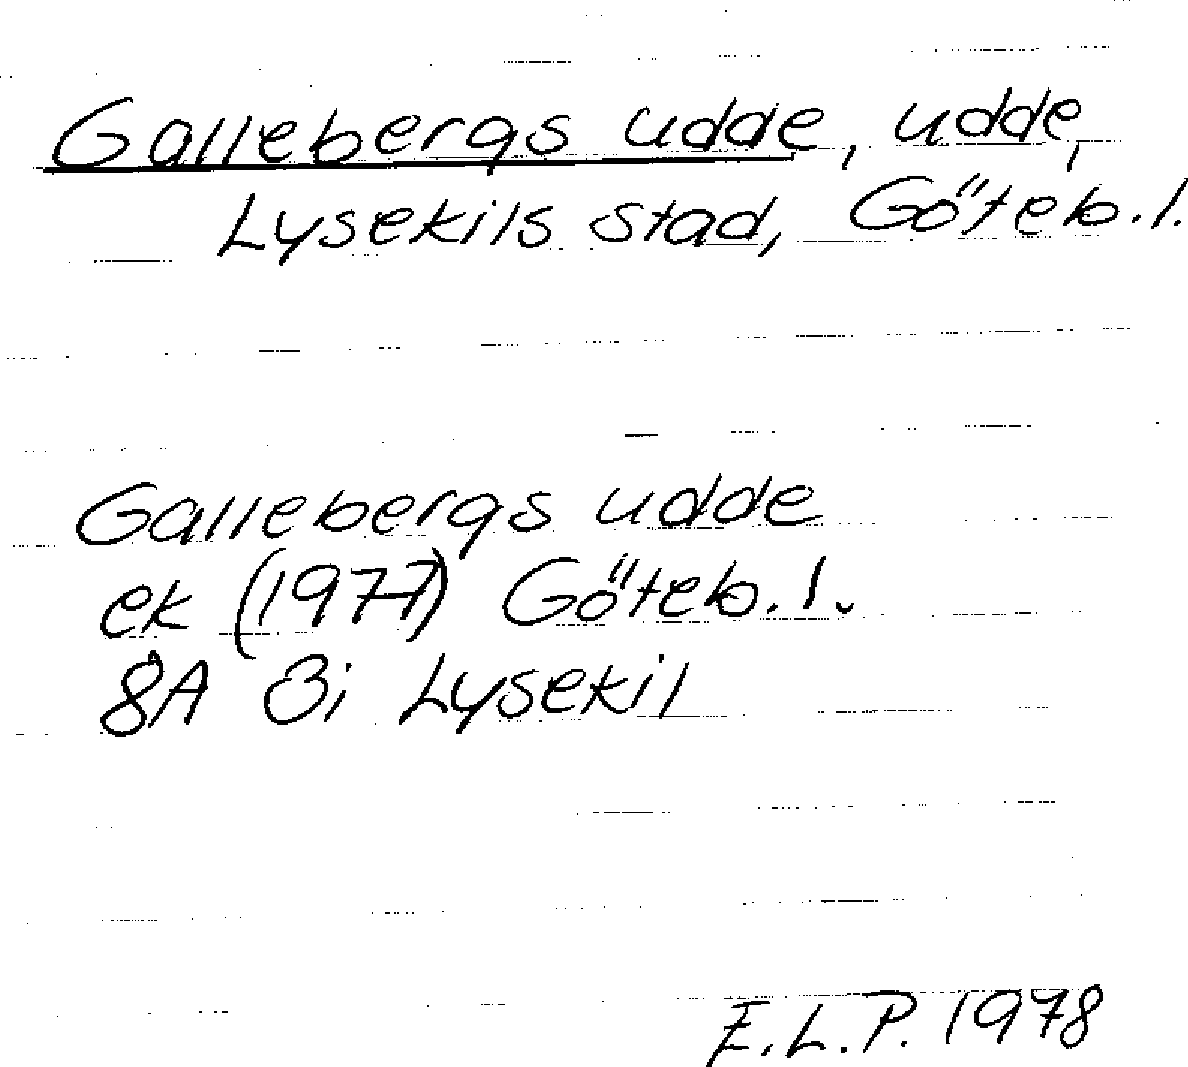 Gallebergs udde, udde,
Lysekils stad, Göteb. l.
Gallebergs udde
ek (1977) Göteb. l.
8A 3i Lysekil
E.L.P. 1978